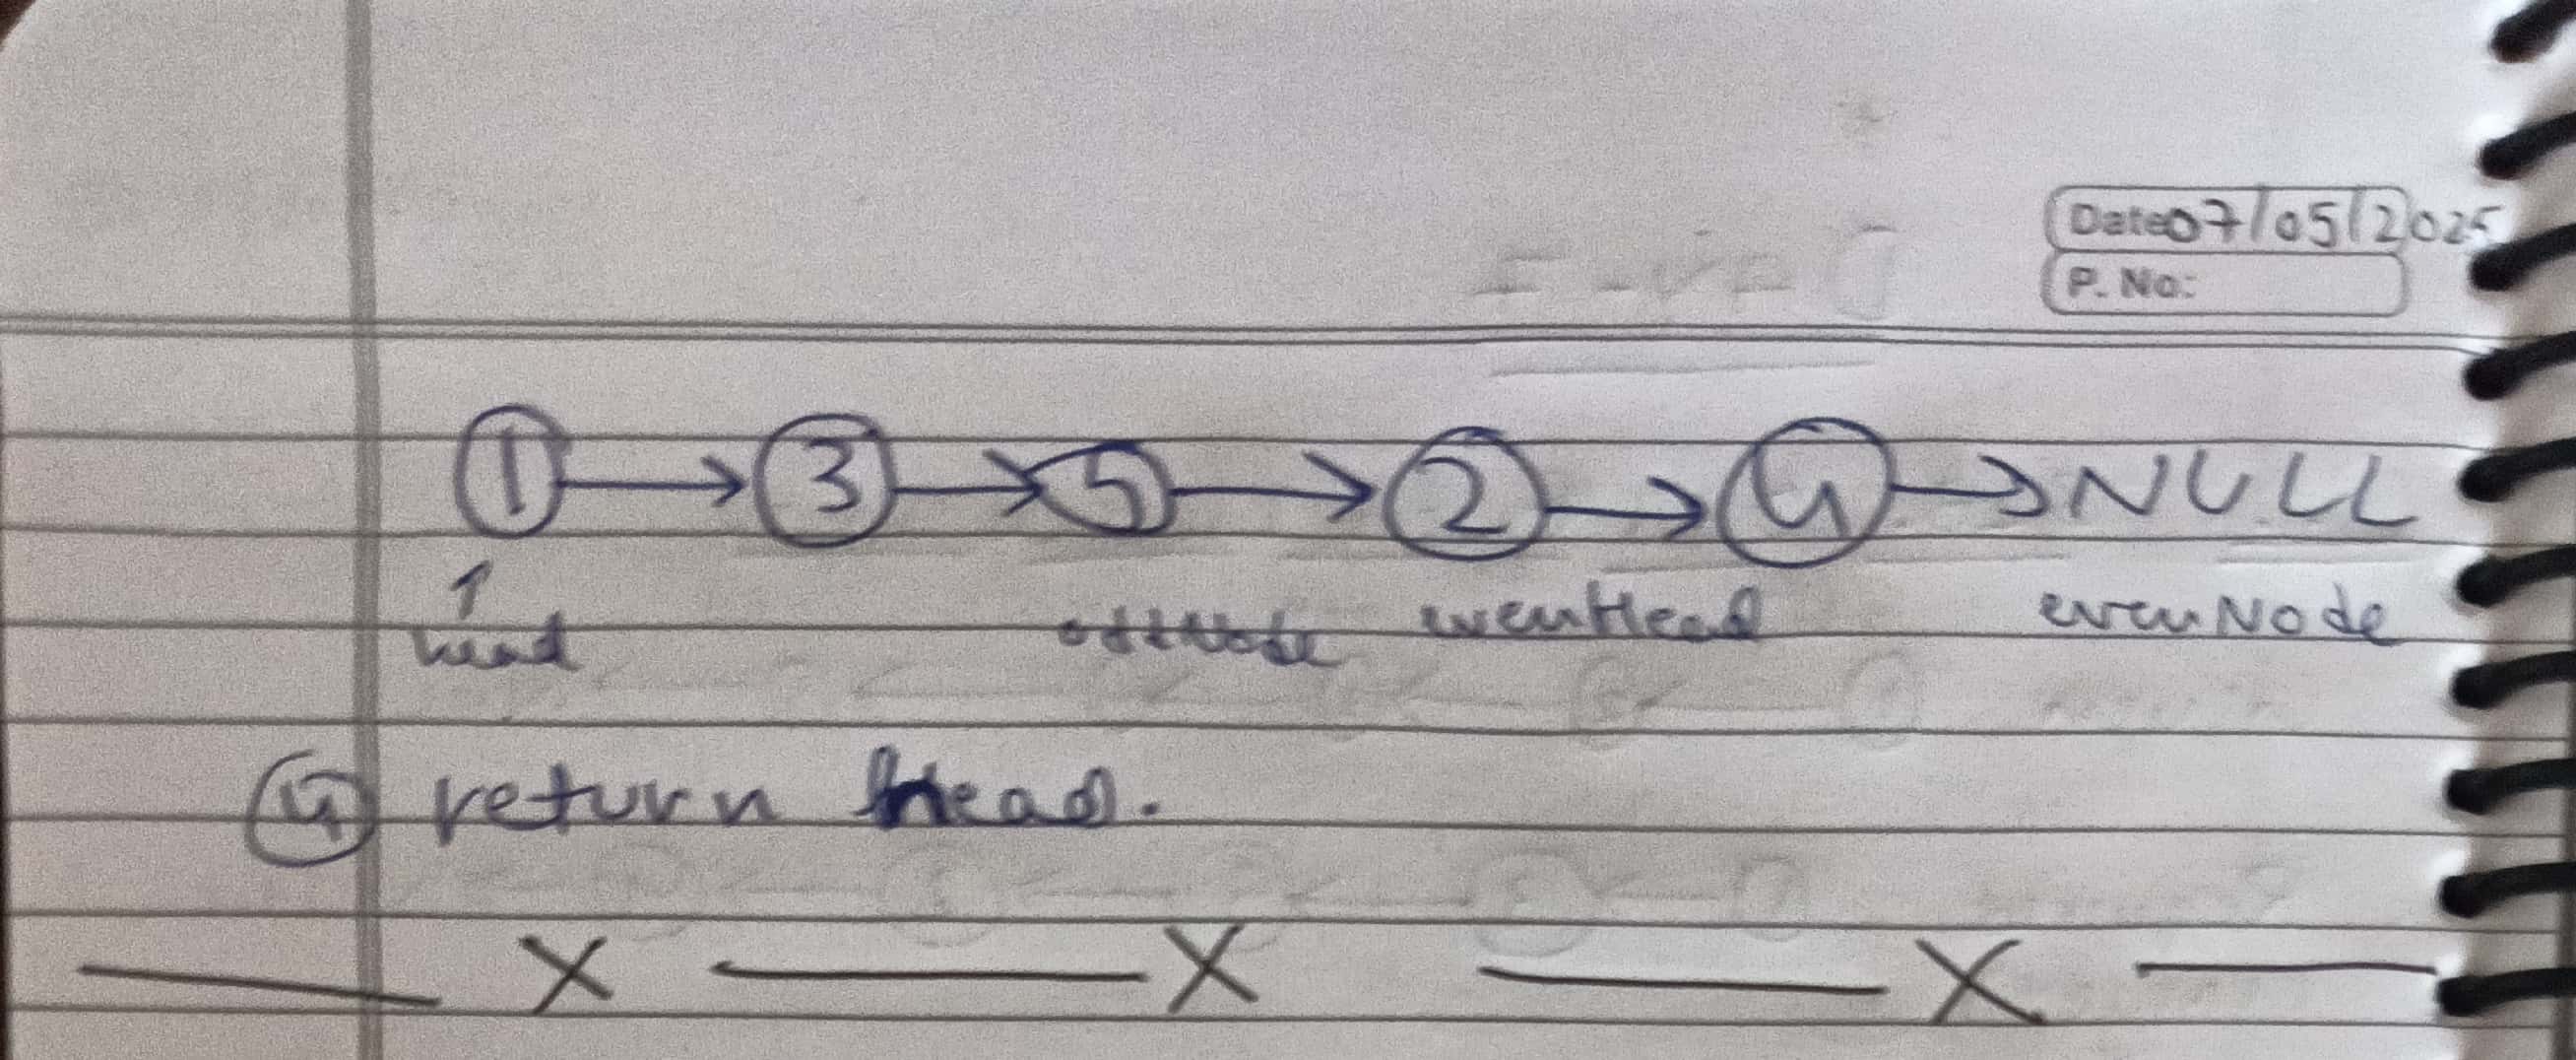 Date 07/05/2025
P. No:
1 → 3 → 5 → 2 → 4 → NULL
↑
head oddNode evenHead evenNode
④ return head.
X X X